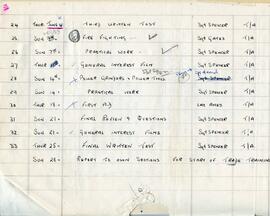 24 THUR JUNE 4 THIRD WRITTEN TEST Sgt SPENCER T/A
25 SUN 7th FIRE FIGHTING Sgt GATES T/A
26 SUN 7th PRACTICAL WORK Sgt SPENCER T/A
27 THUR GENERAL INTEREST FILM Sgt SPENCER T/A
28 SUN 14th POWER GRINDERS & POWER TOOLS Sgt SPENCER T/A
29 SUN 14th PRACTICAL WORK Sgt SPENCER T/A
30 THUR 18 FIRST AID T/A
31 SUN 21 FINAL REVIEW & QUESTIONS Sgt SPENCER T/A
32 SUN 21 GENERAL INTEREST FILMS Sgt SPENCER T/A
33 THUR 25 FINAL WRITTEN TEST Sgt SPENCER T/A
SUN 28 REPORT TO OWN SECTIONS FOR START OF TRADE TRAINING